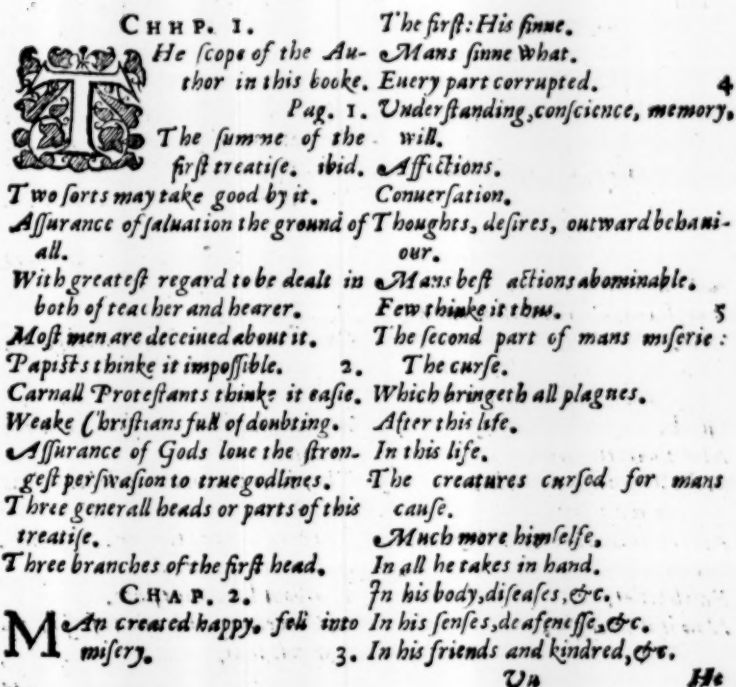 CHHP. I.
THe ſcope of the Au-
thor in this booke.
Pag. 1.
The ſumme of the
firſt treatiſe. ibid.
Two ſorts may take good by it.
Aſſurance of ſaluation the ground of
all.
With greateſt regard to be dealt in
both of teacher and hearer.
Moſt men are deceiued about it.
Papiſts thinke it impoſſible. 2.
Carnall Proteſtants thinke it eaſie.
Weake Chriſtians full of doubting.
Aſſurance of Gods loue the ſtron-
geſt perſwaſion to true godlines.
Three generall heads or parts of this
treatiſe.
Three branches of the firſt head.
CHAP. 2.
MAn created happy. fell into
miſery. 3.
The firſt: His ſinne.
Mans ſinne what.
Euery part corrupted. 4
Vnderſtanding, conſcience, memory,
will.
Affections.
Conuerſation.
Thoughts, deſires, outward behaui-
our.
Mans beſt actions abominable.
Few thinke it thus. 5
The ſecond part of mans miſerie:
The curſe.
Which bringeth all plagnes.
After this life.
In this life.
The creatures curſed for mans
cauſe.
Much more himſelfe,
In all he takes in hand.
In his body, diſeaſes, &c.
In his ſenſes, deafeneſſe, &c.
In his friends and kindred, &c.
He